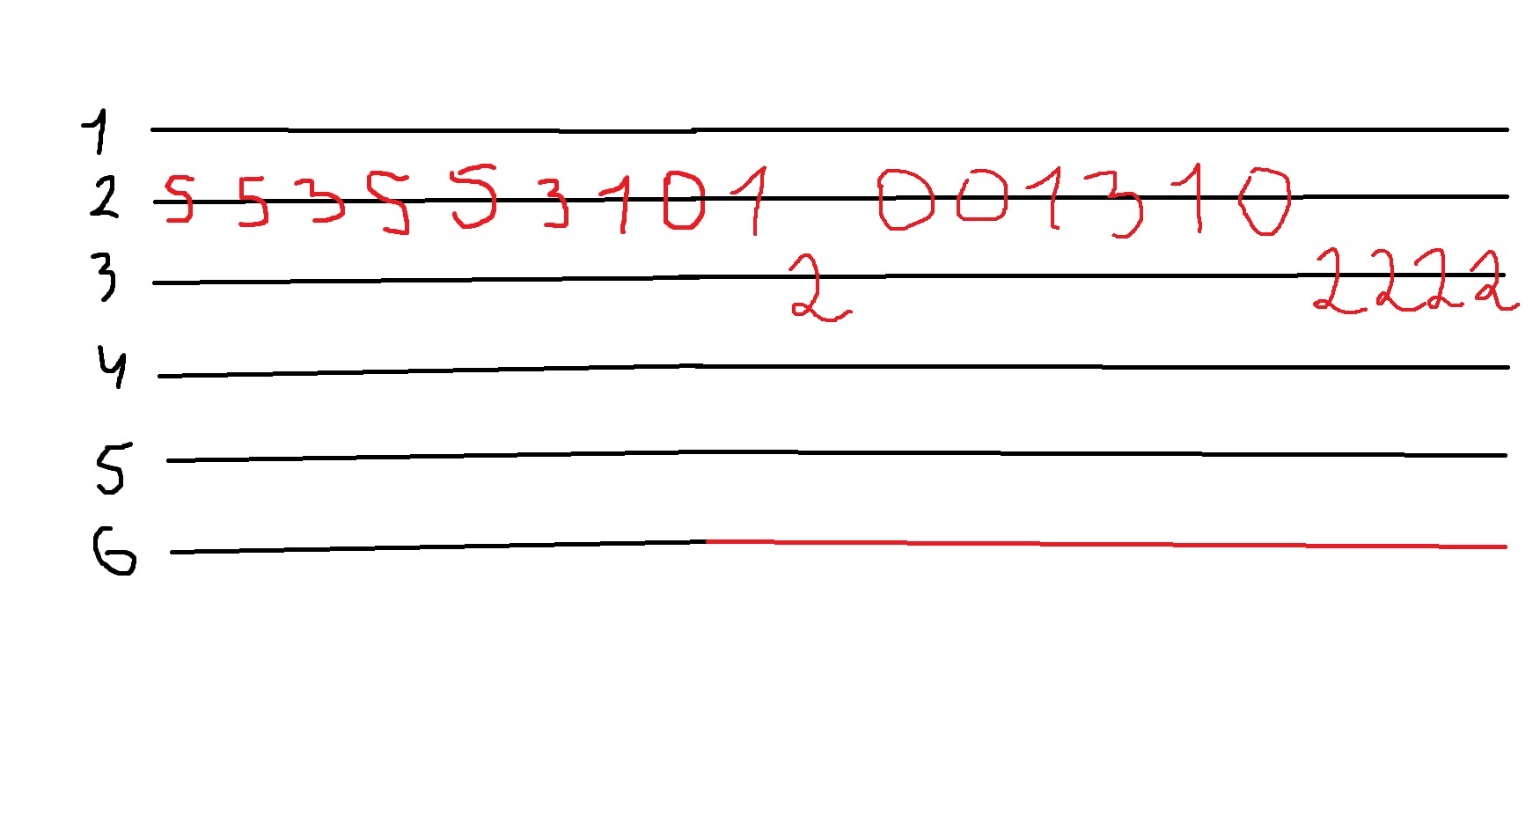 1
2 5 5 3 5 5 3 1 0 1 0 0 1 3 1 0
3 2 2 2 2 2
4
5
6